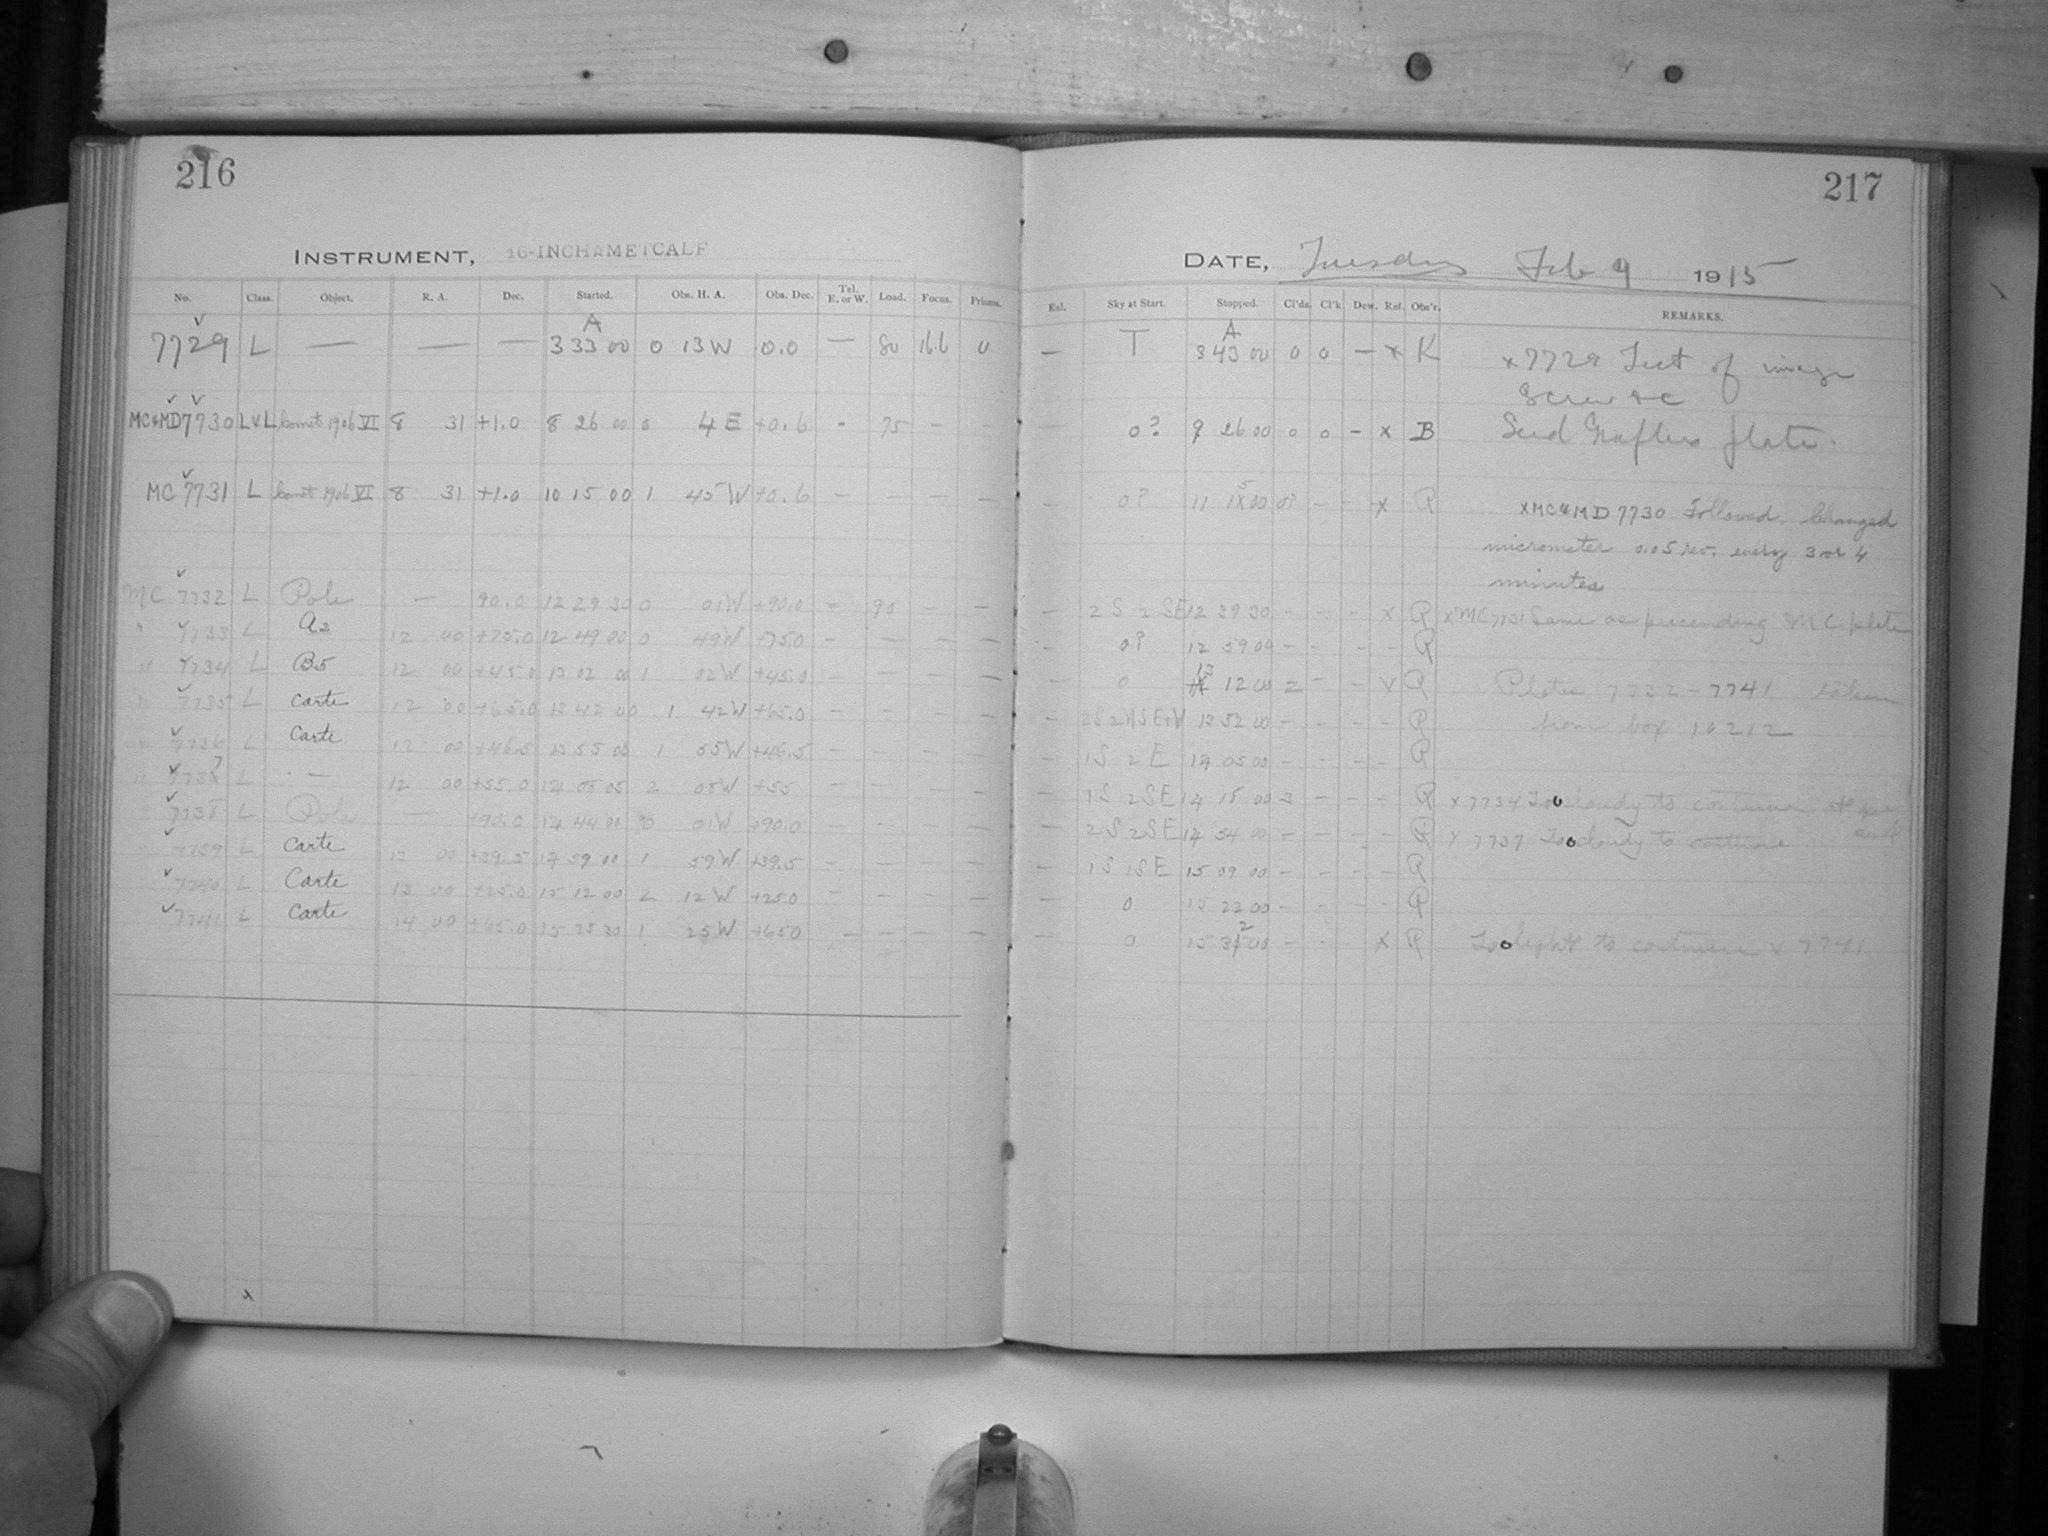 216
INSTRUMENT, 16-INCH METCALF
No. Class. Object. R. A. Dec. Started. Obs. H. A. Obs. Dec. Tel. E. or W. Load. Focus. Prisms.
A
7729 L — — — 3 33 00 0 13 W 0.0 — 80 16.6 0
MC & MD 7730 L & L Comet 1906 VI 8 31 +1.0 8 26 00 0 4 E +0.6 - 75 - -
MC 7731 L Comet 1906 VI 8 31 +1.0 10 15 00 1 45 W +0.6 — — — —
MC 7732 L Pole — 90.0 12 29 30 0 01 W +90.0 — 90 — —
" 7733 L A2 12 00 +75.0 12 49 00 0 49 W +75.0 — — — —
" 7734 L B5 12 00 +45.0 13 02 00 1 02 W +45.0 — — — —
" 7735 L Carte 12 00 +65.0 13 42 00 1 42 W +65.0 — — — —
" 7736 L Carte 12 00 +46.5 13 55 00 1 55 W +46.5 — — — —
" 7737 L — 12 00 +55.0 14 08 2 08 W +55 — — — —
7738 L Pole — +90.0 14 44 00 0 01 W +90.0 — — — —
7739 L Carte 13 00 +39.5 14 59 00 1 59 W +39.5 — — — —
7740 L Carte 13 00 +25.0 15 12 00 2 12 W +25.0 — — — —
7741 L Carte 14 00 +65.0 15 25 30 1 25 W +650 — — — —
217
DATE, Tuesday Feb 9 1915
Enl. Sky at Start. Stopped. Cl'ds. Cl'k Dew. Ref. Obs'r. REMARKS.
A
— T 3 43 00 0 0 — x K x 7729 Test of image
screw &c
— 0? 9 26 00 0 0 — x B Seed Graflex plate.
— 0? 11 15 00 0? — — x P
x MC & MD 7730 Followed. Changed
micrometer 0.05 rev. every 3 or 4
minutes
— 2 S 2 SE 12 39 30 - - - x P x MC 7731 Same as preceeding MC plate
— 0? 12 59 00 - - - - P
— 0 13 12 00 2 - - x P Plates 7732 - 7741 taken
— 2S 2WSE+W 13 52 00 - - - - P from box 10212
— 1 S 2 E 14 05 00 - - - - P
— 1 S 2 SE 14 18 00 3 - - - P x 7734 Too cloudy to continue
— 2 S 2 SE 14 54 00 - - - - P x 7737 Too cloudy to continue
— 1 S 1 SE 15 09 00 - - - - P
— 0 15 22 00 - - - - P
— 0 15 32 00 - - x P Too light to continue x 7741